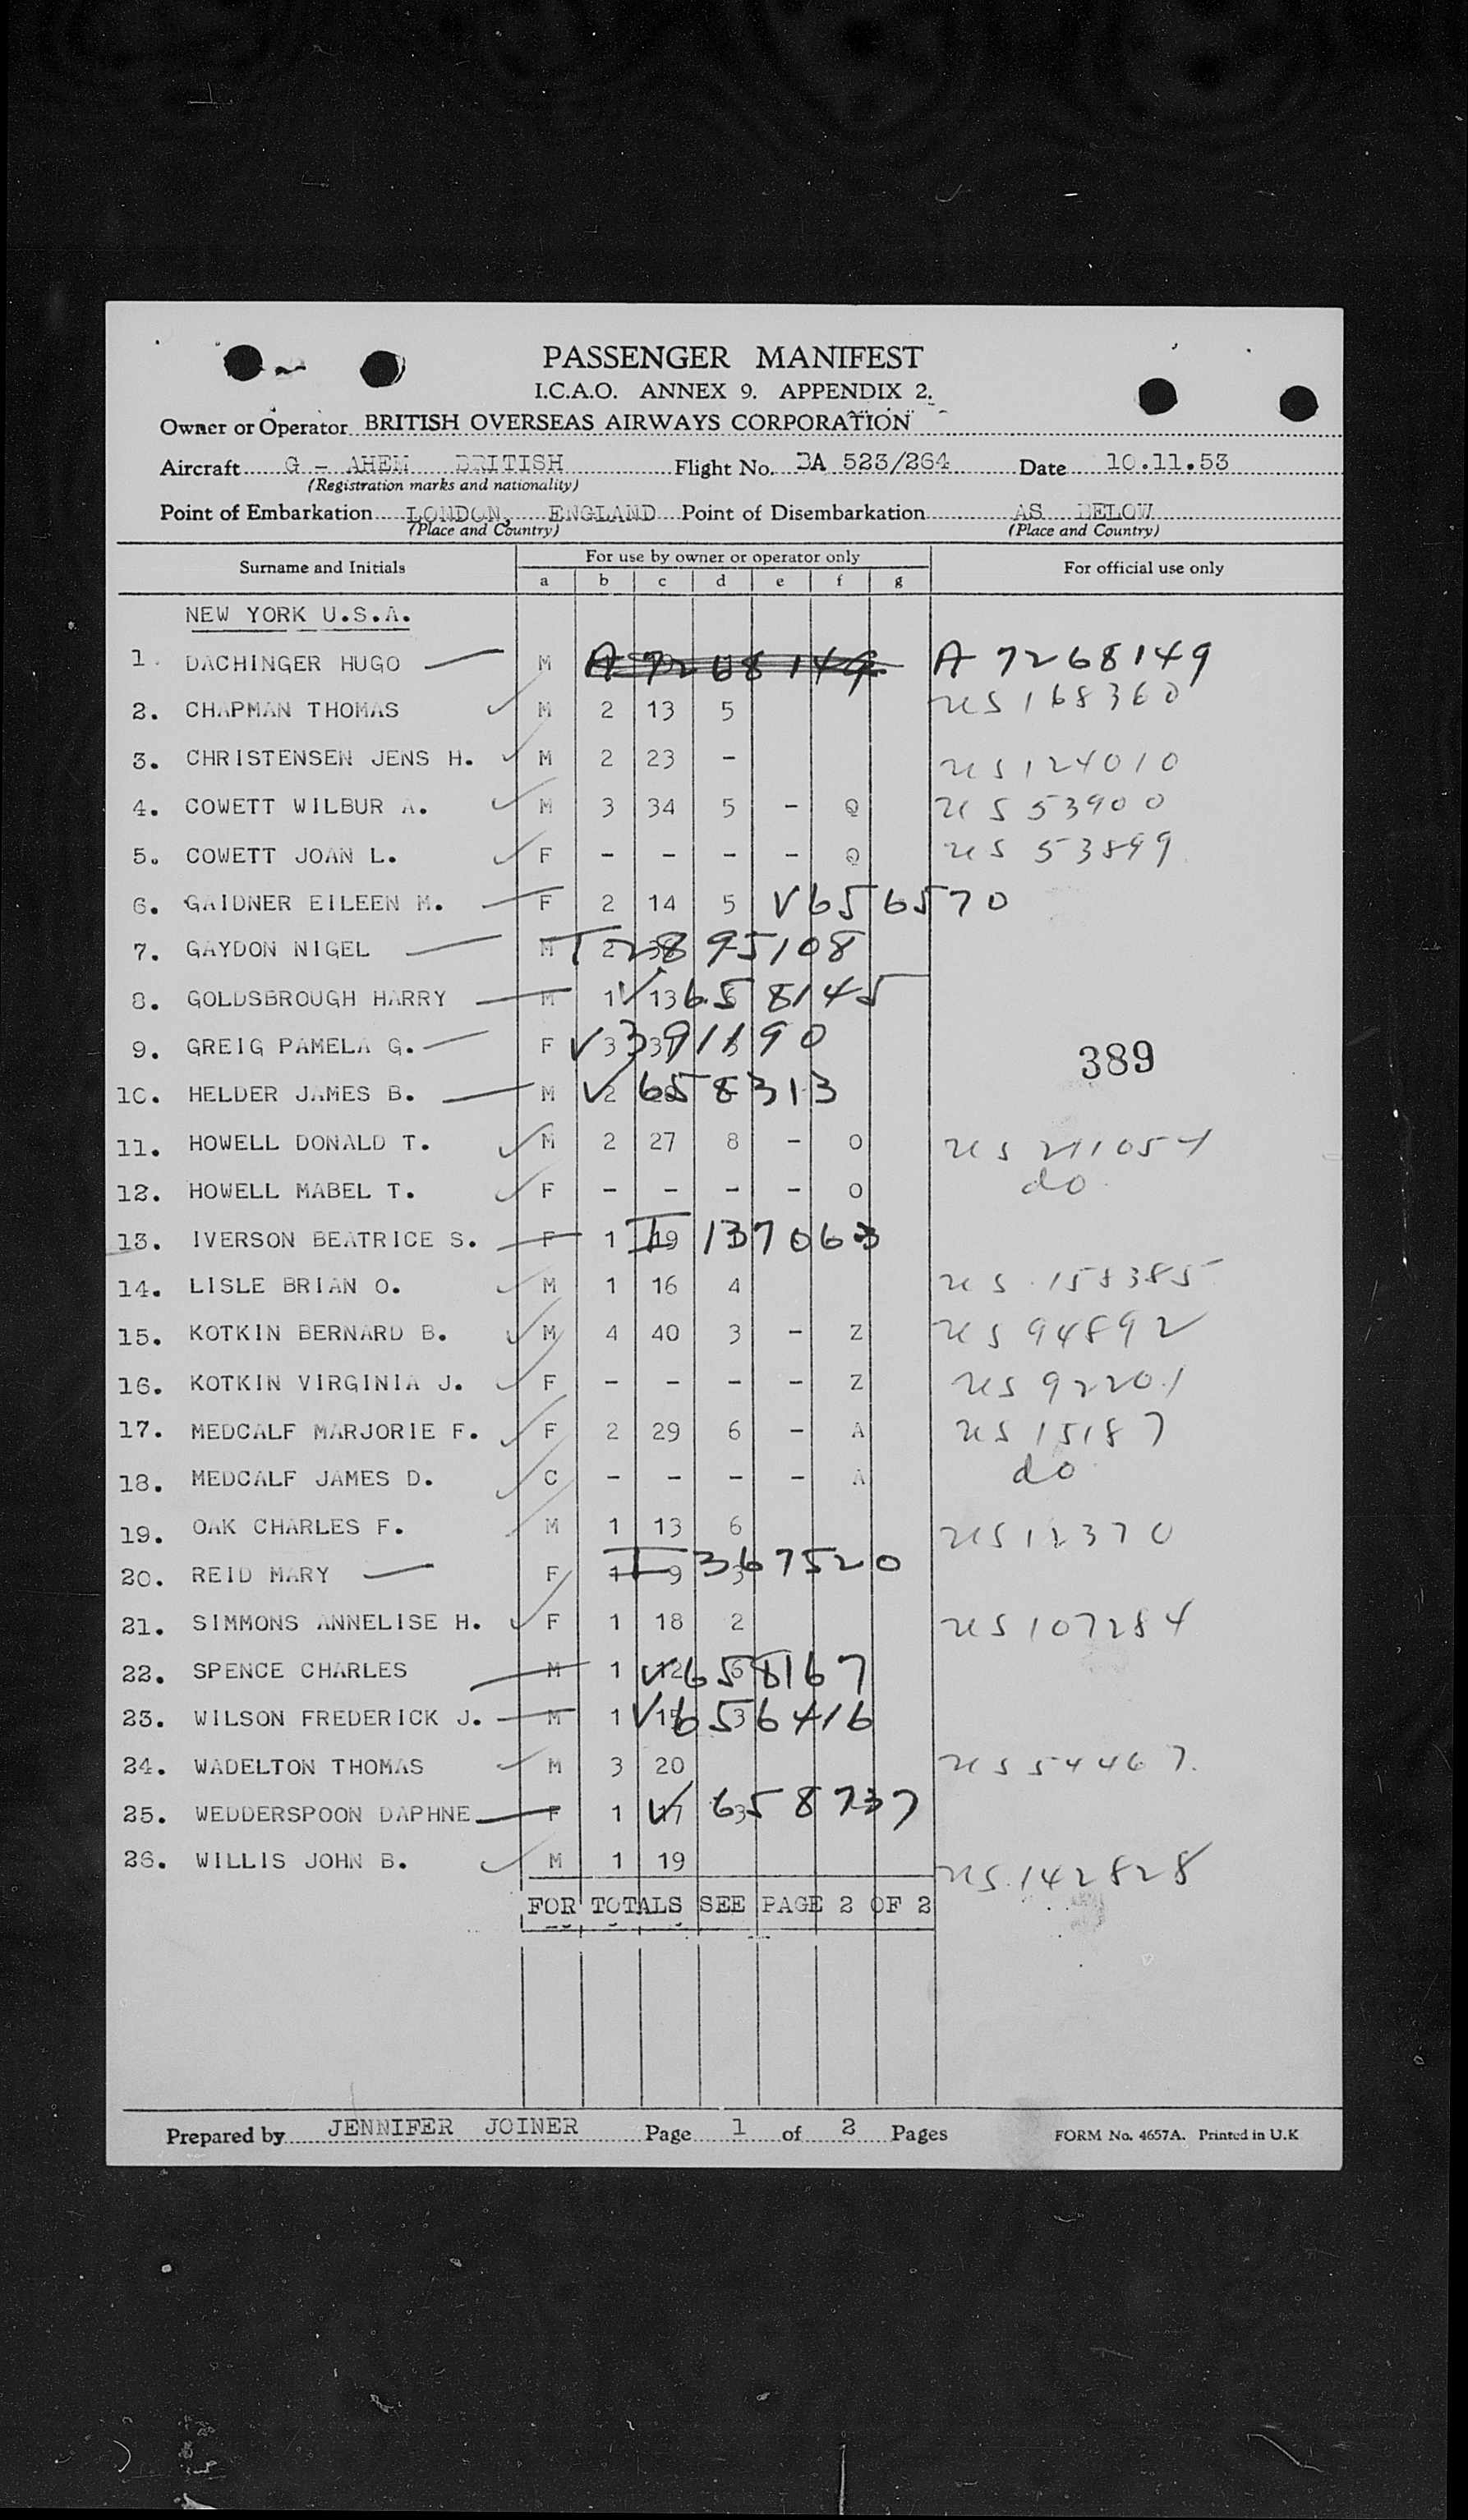 PASSENGER MANIFEST
I.C.A.O. ANNEX 9. APPENDIX 2.
Owner or Operator BRITISH OVERSEAS AIRWAYS CORPORATION
Aircraft G - AHEM BRITISH Flight No. BA 523/264 Date 10.11.53
(Registration marks and nationality)
Point of Embarkation LONDON, ENGLAND Point of Disembarkation AS BELOW
(Place and Country) (Place and Country)
Surname and Initials For use by owner or operator only For official use only
a b c d e f g
NEW YORK U.S.A.
1. DACHINGER HUGO M A 7268149 A 7268149
2. CHAPMAN THOMAS M 2 13 5 US 168360
3. CHRISTENSEN JENS H. M 2 23 - US 124010
4. COWETT WILBUR A. M 3 34 5 - Q US 53900
5. COWETT JOAN L. F - - - - Q US 53899
6. GAIDNER EILEEN M. F 2 14 5 V656570
7. GAYDON NIGEL M T2895108
8. GOLDSBROUGH HARRY M 1 13 V658145
9. GREIG PAMELA G. F 3 V3391190
389
10. HELDER JAMES B. M 2 V658313
11. HOWELL DONALD T. M 2 27 8 - O US 211054
12. HOWELL MABEL T. F - - - - O do
13. IVERSON BEATRICE S. F 1 19 I 137063
14. LISLE BRIAN O. M 1 16 4 US 158385
15. KOTKIN BERNARD B. M 4 40 3 - Z US 94892
16. KOTKIN VIRGINIA J. F - - - - Z US 92201
17. MEDCALF MARJORIE F. F 2 29 6 - A US 15187
18. MEDCALF JAMES D. C - - - - A do
19. OAK CHARLES F. M 1 13 6 US 12370
20. REID MARY F 1 9 3 I 367520
21. SIMMONS ANNELISE H. F 1 18 2 US 107284
22. SPENCE CHARLES M 1 12 6 V658167
23. WILSON FREDERICK J. M 1 15 3 V656416
24. WADELTON THOMAS M 3 20 US 54467
25. WEDDERSPOON DAPHNE F 1 17 3 V658737
26. WILLIS JOHN B. M 1 19 US 142828
FOR TOTALS SEE PAGE 2 OF 2
Prepared by JENNIFER JOINER Page 1 of 2 Pages FORM No. 4657A. Printed in U.K